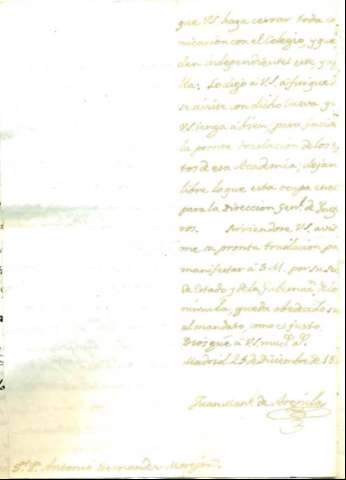 que V.S. haga cerrar toda co
nicacion con el Colegio, y que
den independientes este y a
lla; Lo digo à V.S. a fin que
se aviste con dicho
V.S. tenga à bien, para
la pronta traslacion de los
tos de esa Academia, dejan
libre lo que esta ocupa en el
para la Direccion Genl. de Inge
ros. Sirviendose V.S. avis
me su pronta traslacion pa
manifestar à S.M. por su
de Estado y de la
ninsula, queda obedecido su
al mandato, como es justo.
Dios gue. à V.S. ms. as.
Madrid 25 de Diciembre de 18
Juan Manl. de
Sr. Dn. Antonio Hernandez Morejon